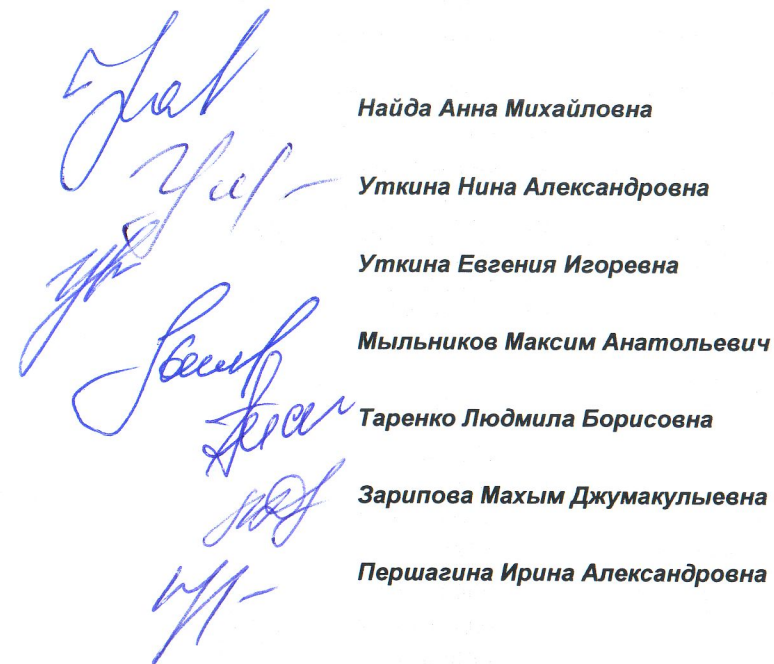 Найда Анна Михайловна
Уткина Нина Александровна
Уткина Евгения Игоревна
Мыльников Максим Анатольевич
Таренко Людмила Борисовна
Зарипова Махым Джумакулыевна
Першагина Ирина Александровна